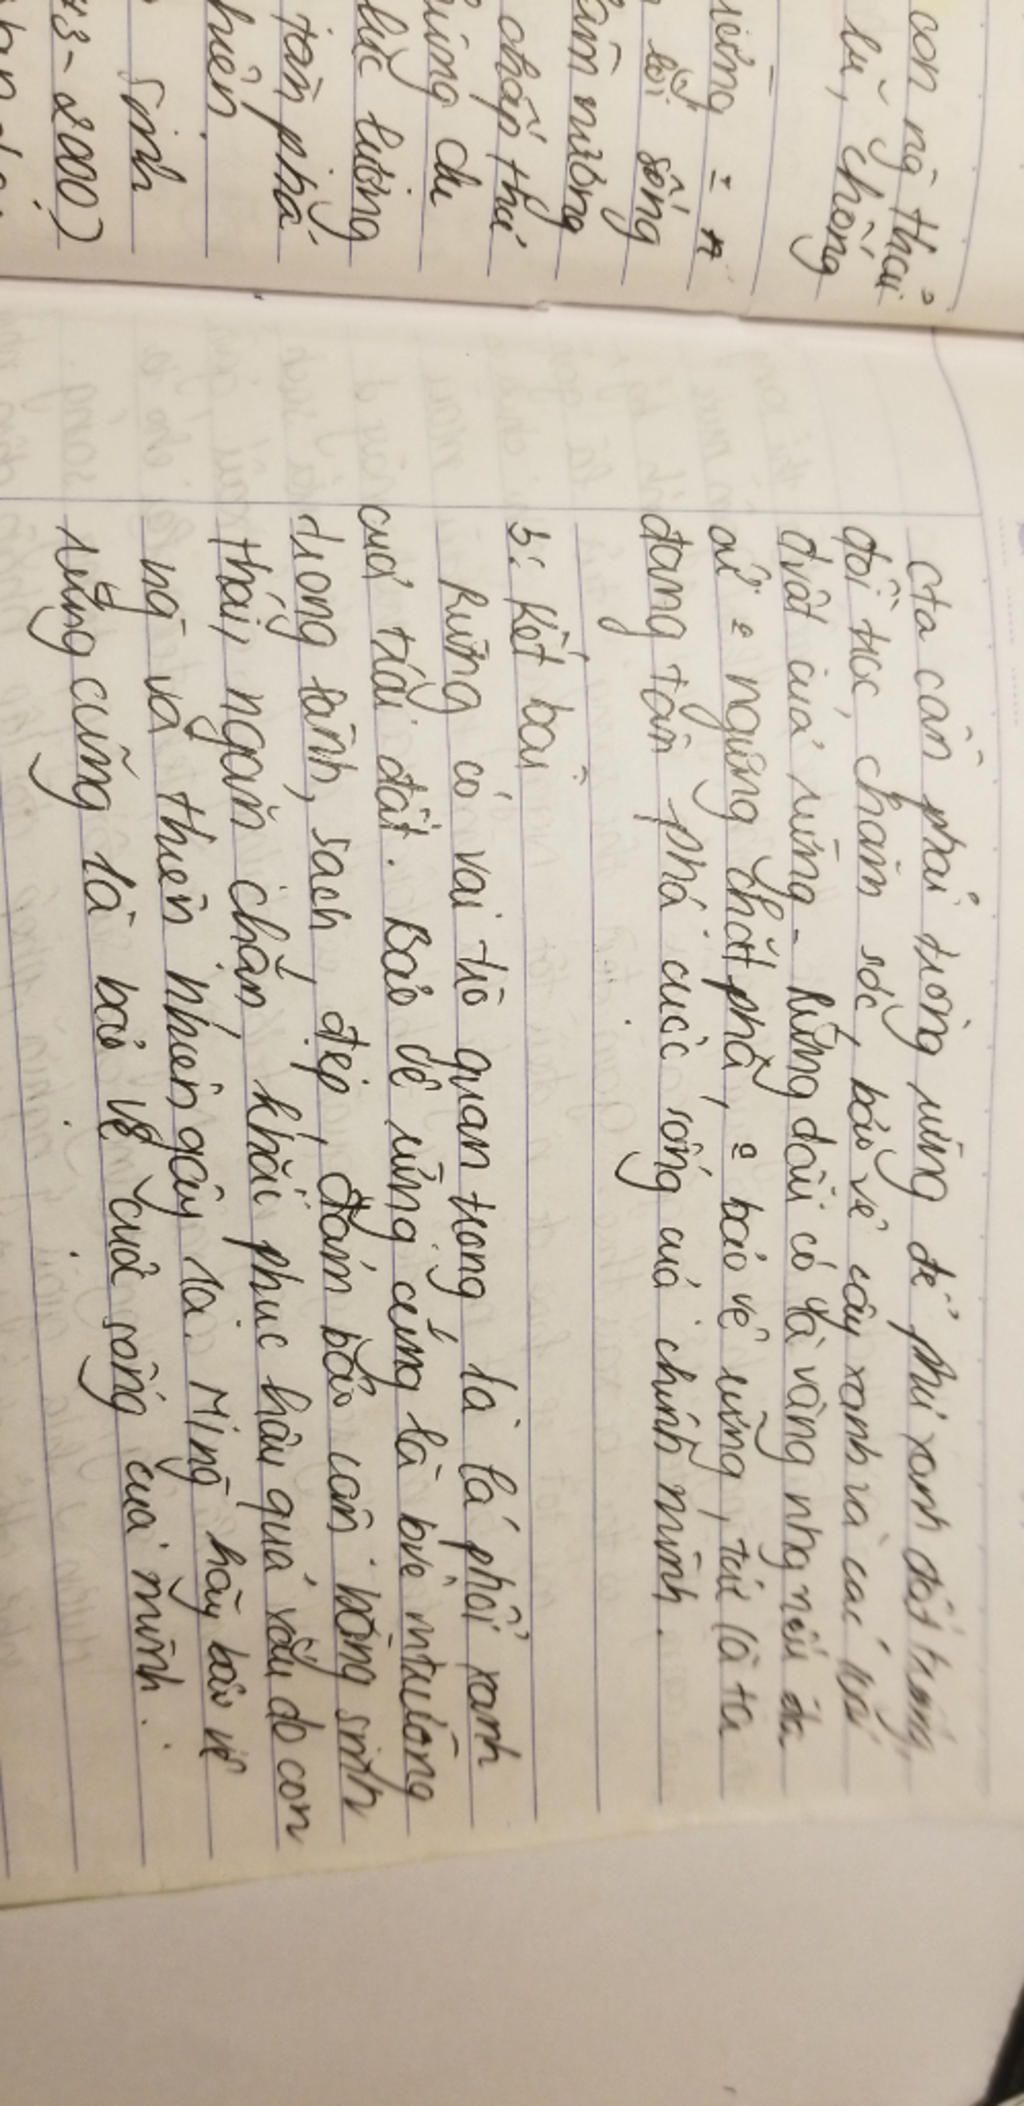 con ng thải
lũ, chống
lối sống
làm nương
chấp thú
rừng du
lục lượng
tàn phá
nhiên.
sinh
73-2000)
cta cần phải trồng rừng để phủ xanh đất trống,
đồi trọc, chăm sóc, bảo vệ cây xanh và các loài
đvật của rừng - Rừng dẫu có là vàng nhg nếu cta
cứ o ngừng chặt phá, o bảo vệ rừng, tức là ta
đang tàn phá cuộc sống của chính mình.
3: Kết bài
Rừng có vai trò quan trọng là lá phổi xanh
của trái đất. Bảo dệ rừng cũng là bve mtrường
trong lành, sạch, đẹp, đảm bảo cân bằng sinh
thái, ngăn chặn, khắc phục hậu quả xấu do con
ng và thiên nhiên gây ra. Mng hãy bảo vệ
rừng cũng là bảo vệ cuộc sống của mình.